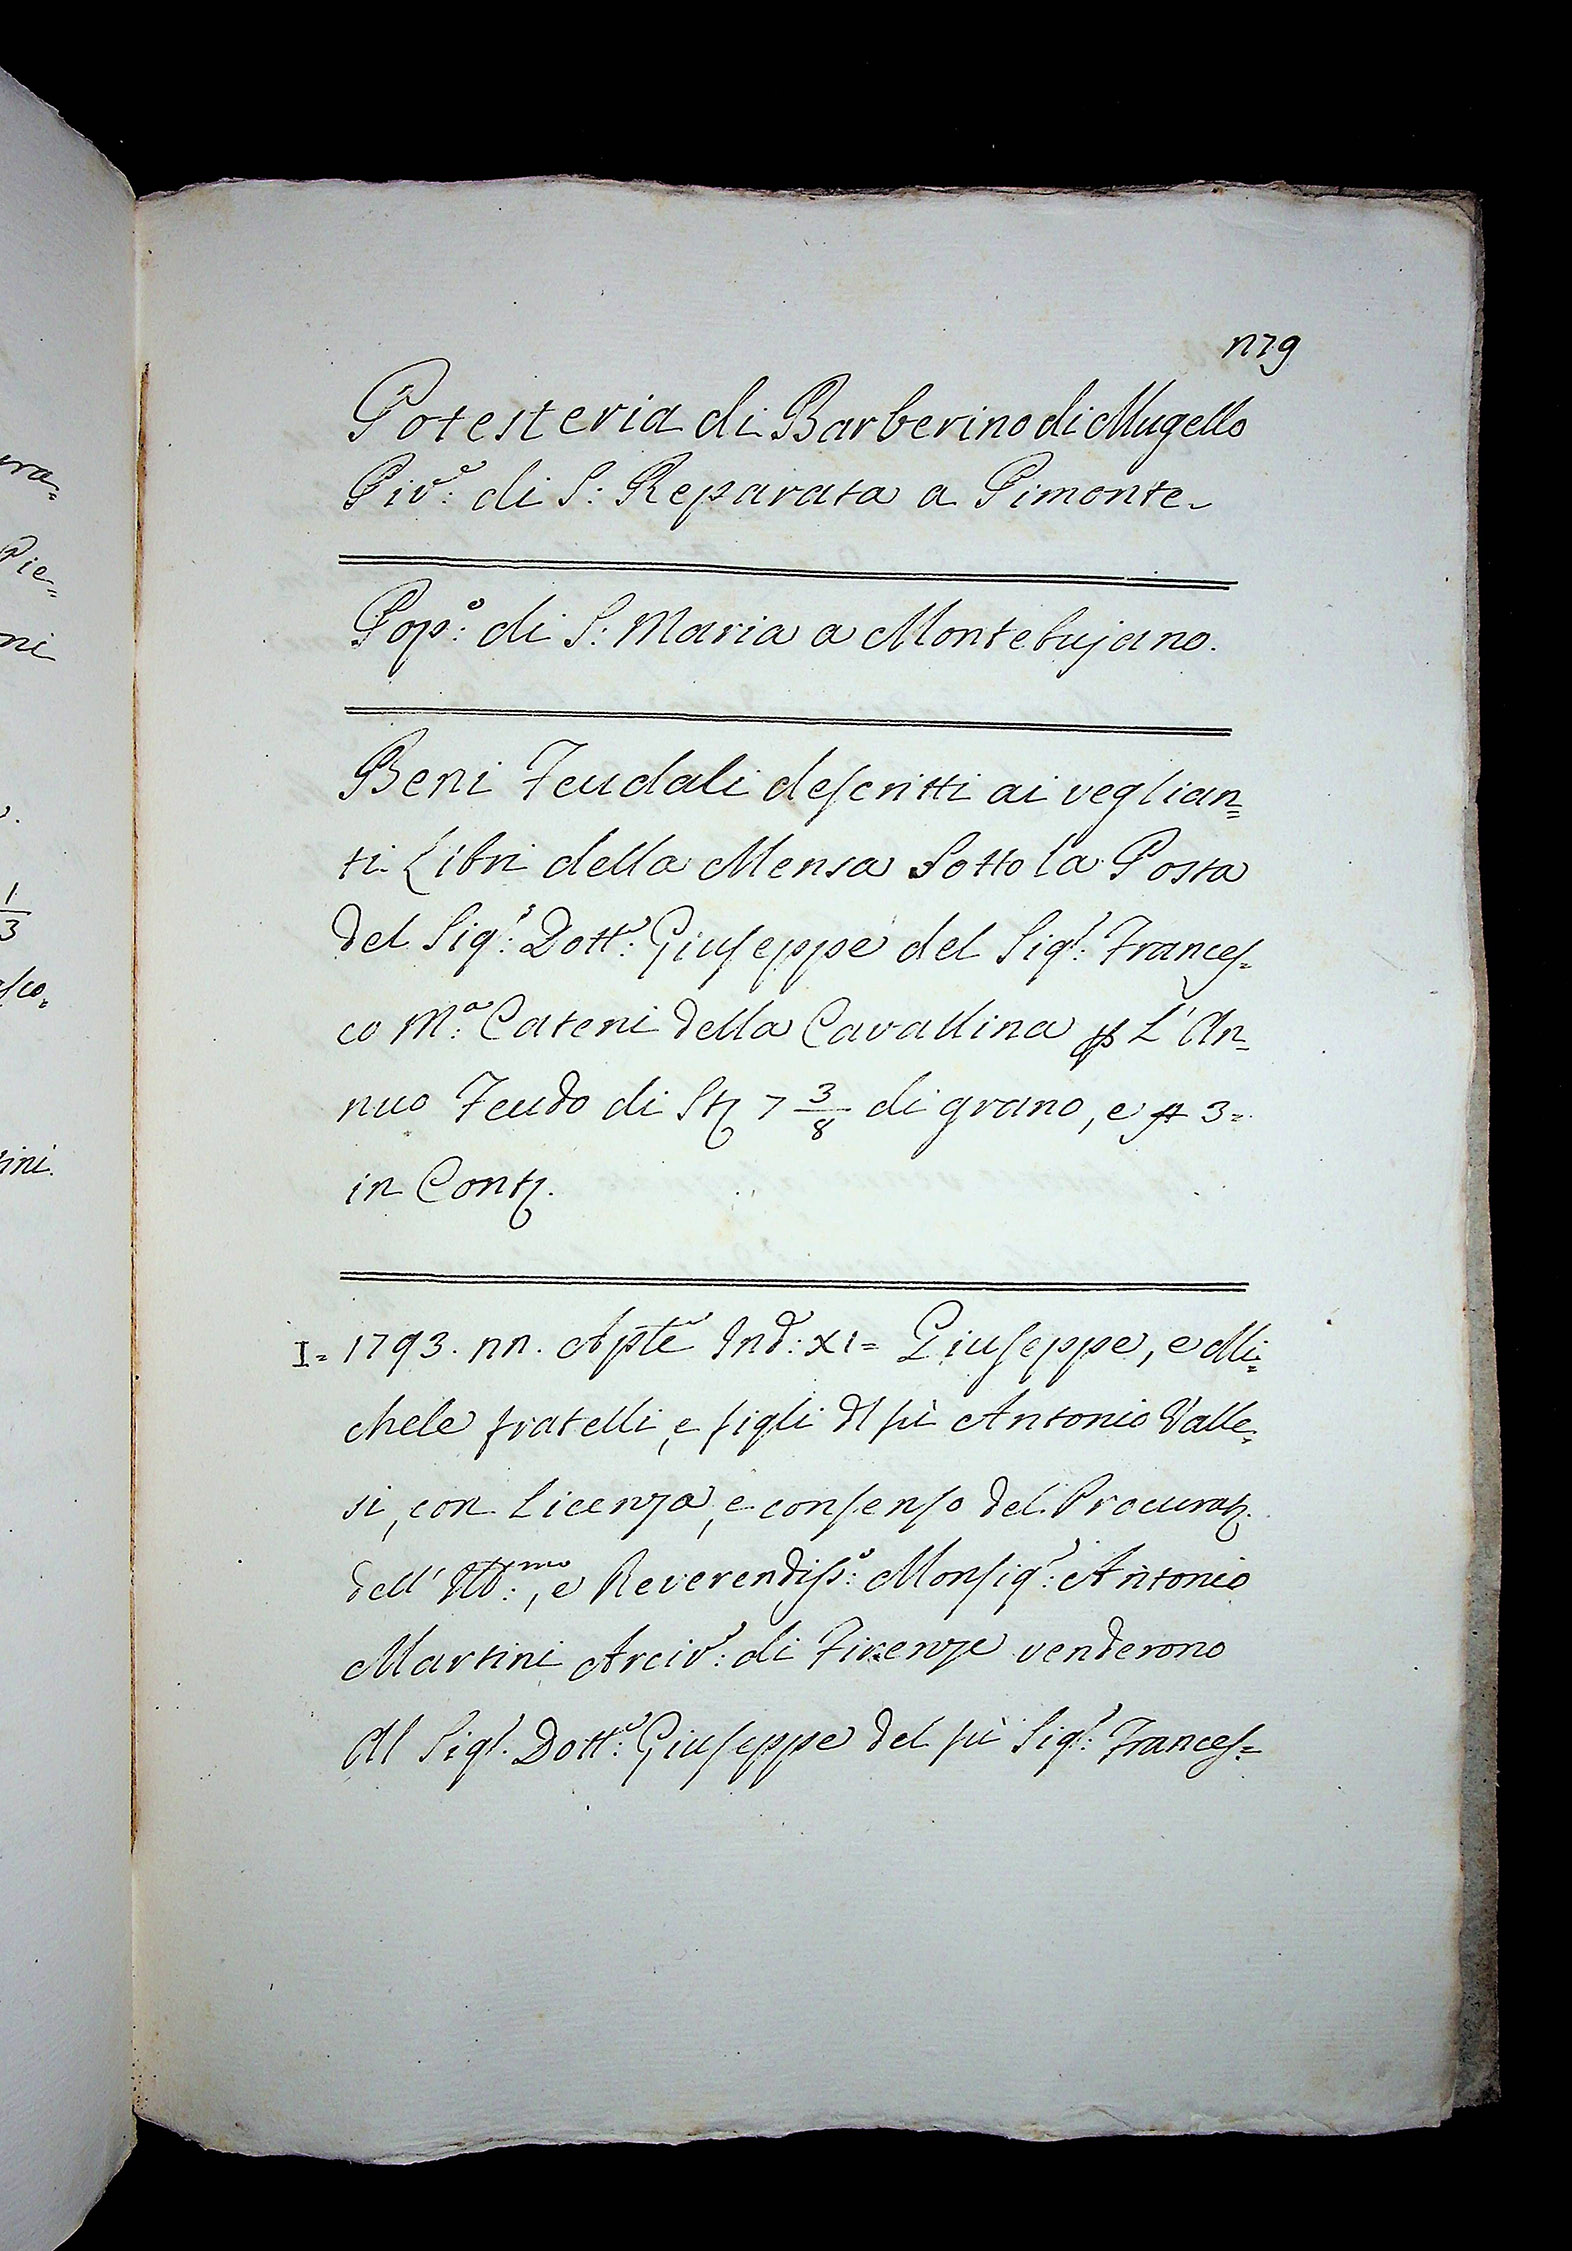 179
Potesteria di Barberino di Mugello
Piv.e di S: Reparata a Pimonte.
Pop.o: di S: Maria a Montebujano.
Beni Feudali descritti ai veglian=
ti Libri della Mensa Sotto la Posta
del Sig.r: Dott.e: Giuseppe del Sig.r: Frances=
co M.a: Cateni della Cavallina p L'An=
nuo Feudo di St 7 3/8 di grano, e # 3=
in Cont.
I= 1793. 11. Aple Ind: XI= Giuseppe, e Mi=
chele fratelli, e figli dl fù Antonio Valle=
si, con Licenza, e consenso del Procurat.
dell' Ill:mo, e Reverendiss.o: Monsig.r: Antonio
Martini Arciv.o: di Firenze venderono
Al Sig.r. Dott.e: Giuseppe del fù Sig.r: Frances=
ra=
Pie=
ni
1/3
sco=
ini.